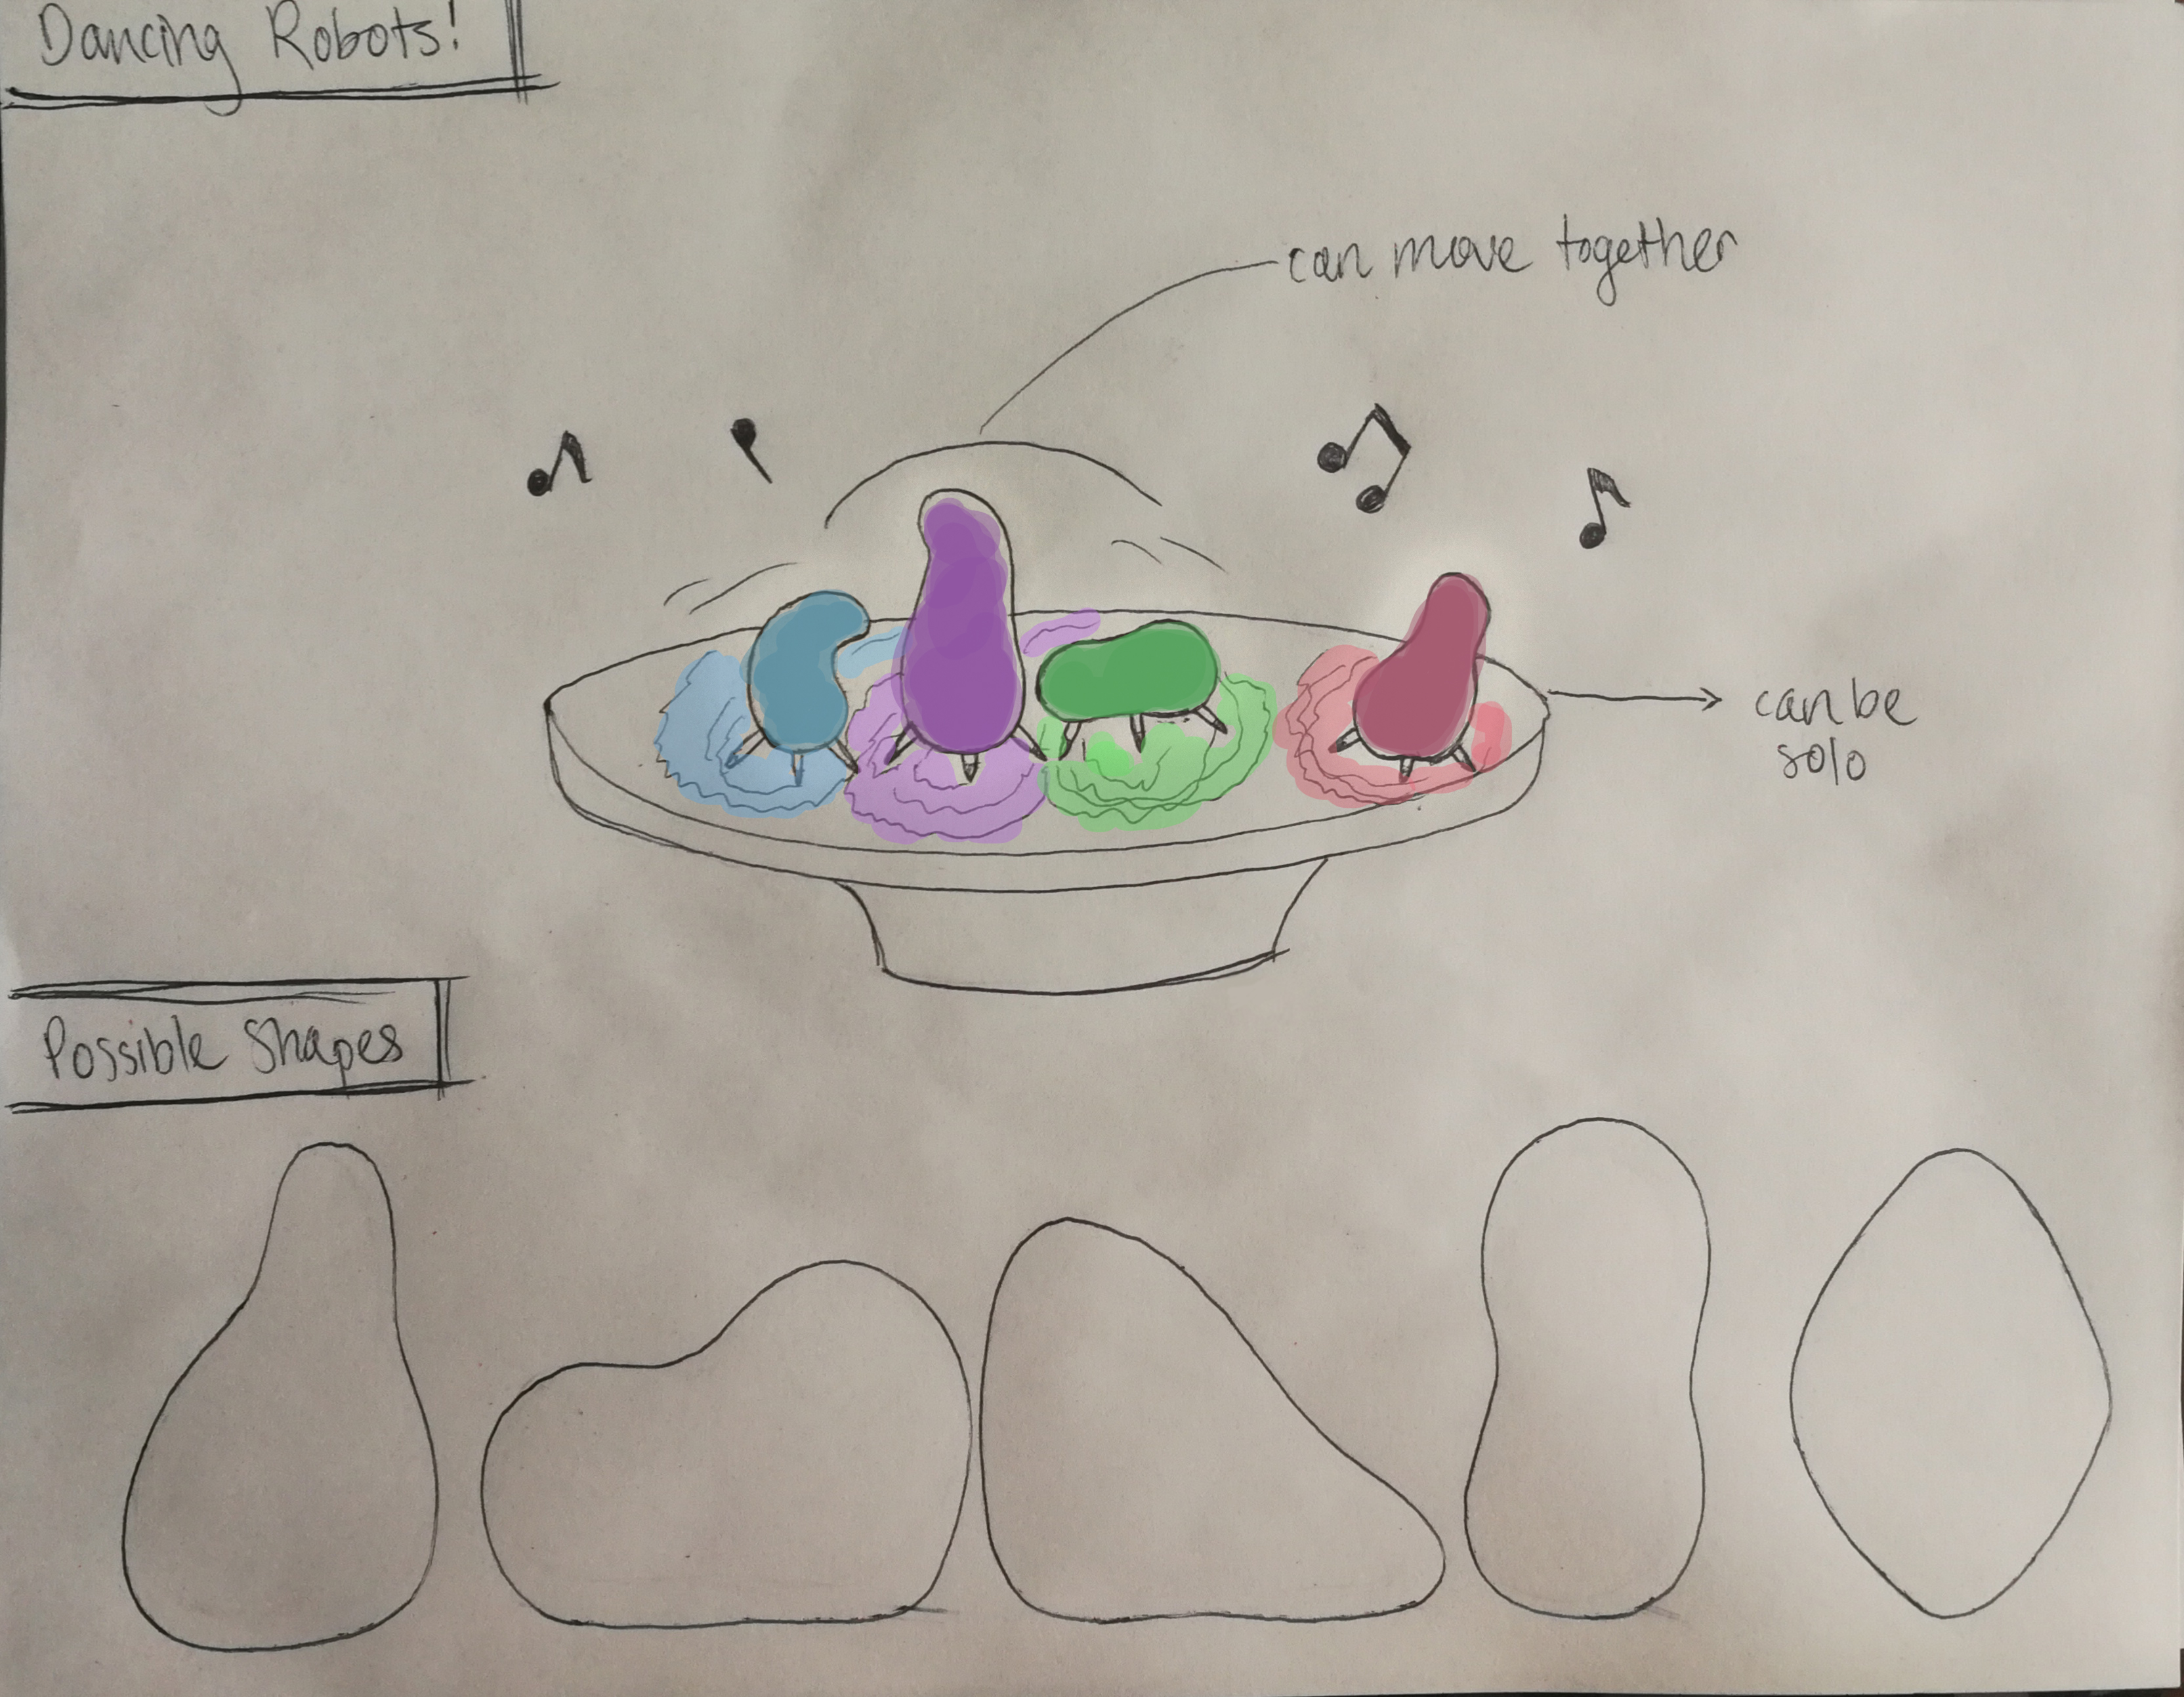 Dancing Robots!
can move together
can be
solo
Possible Shapes